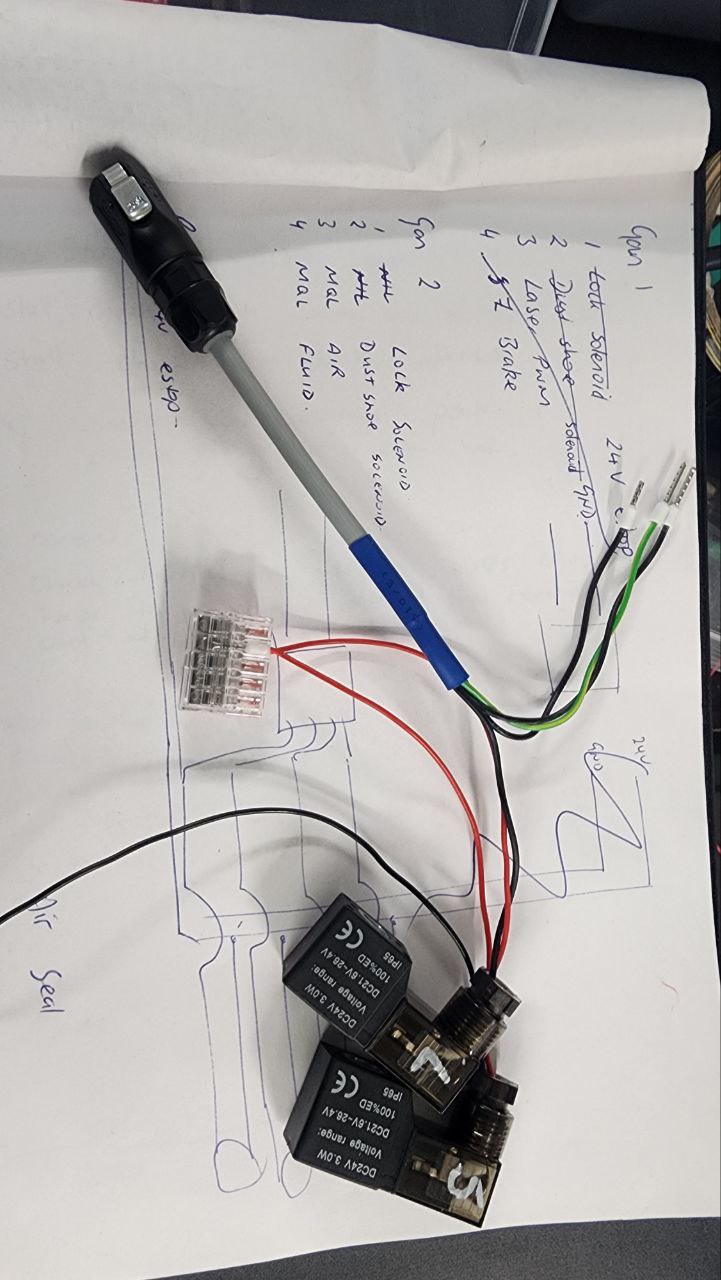 Gan 1
1 Lock Solenoid 24V estop
2 Dust shoe solenoid GND.
3 Laser PWM
4 Z Brake
24V
GND
Gan 2
1 NIL LOCK SOLENOID
2 NIL Dust shoe SOLENOID.
3 MQL AIR
4 MQL FLUID.
estop
Air Seal
L
S
DC24V 3.0W
Voltage range:
DC21.6V~26.4V
100%ED
CE IP65
DC24V 3.0W
Voltage range:
DC21.6V~26.4V
100%ED
CE IP65